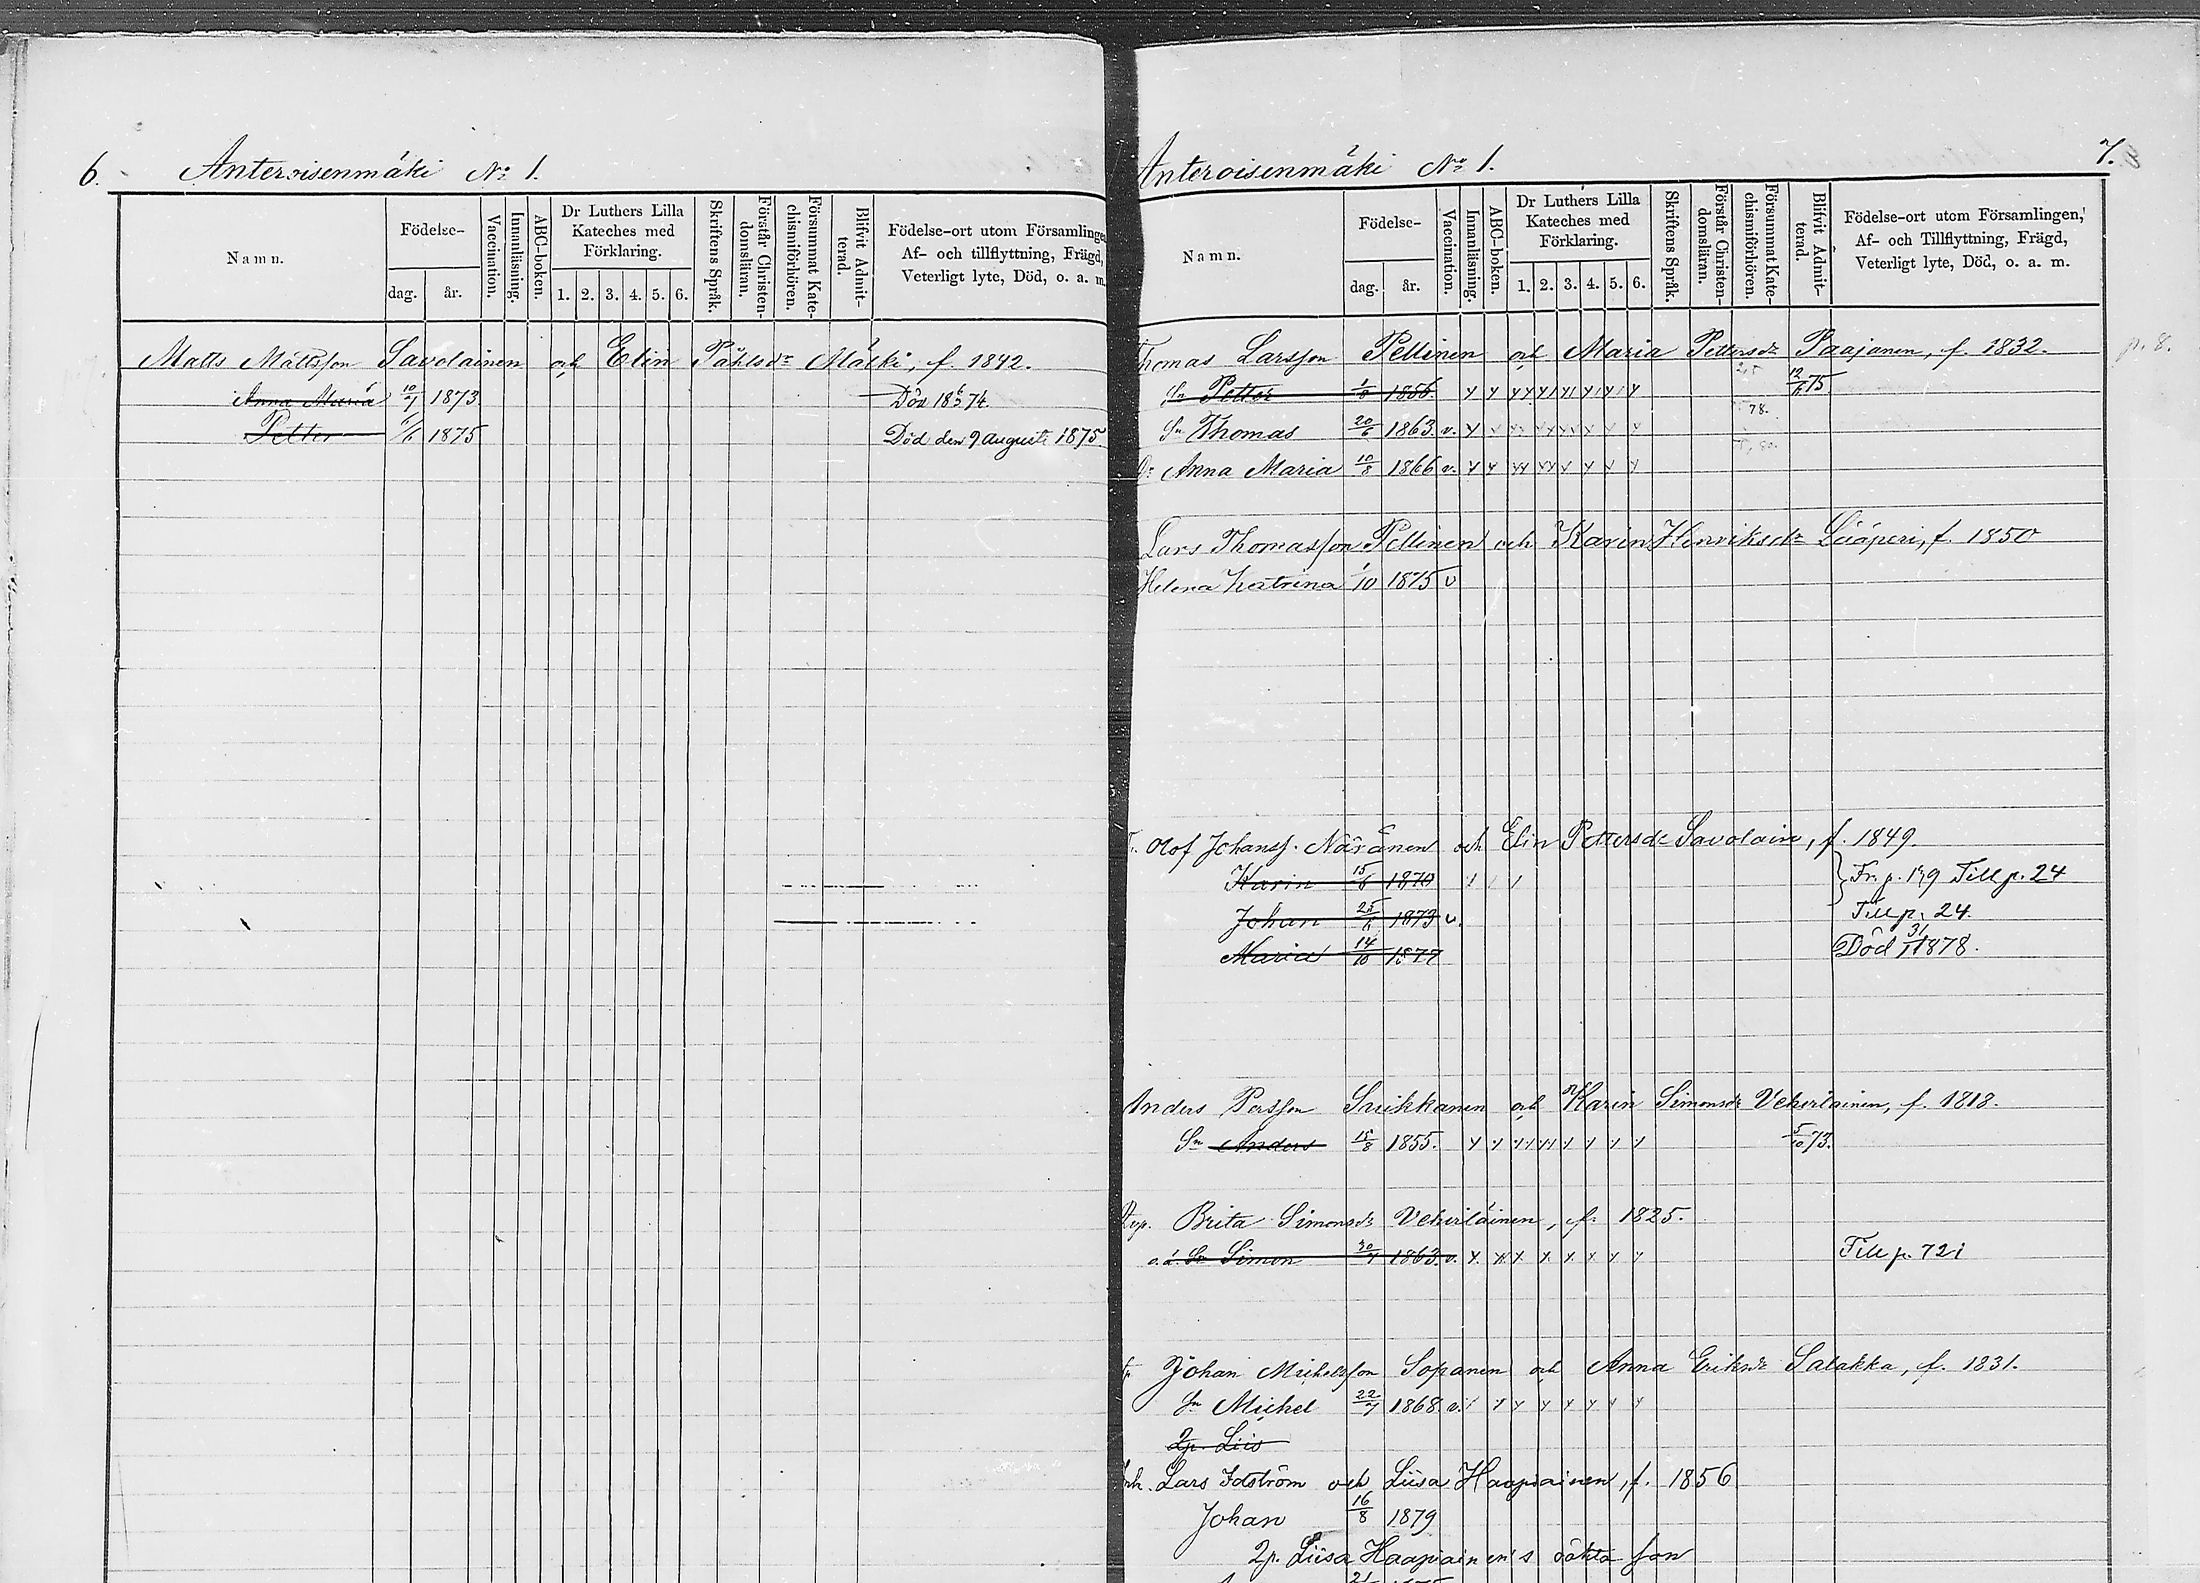 6. Anteroisenmäki No 1.
Namn. Födelse- dag. år. Vaccination. Innanläsning. ABC-boken. Dr Luthers Lilla Kateches med Förklaring. 1. 2. 3. 4. 5. 6. Skriftens Språk. Förstår Christendomsläran. Försummat Katechismiförhören. Blifvit Admitterad. Födelse-ort utom Församlingen, Af- och tillflyttning, Frägd, Veterligt lyte, Död, o. a. m.
Matts Mattsson Savolainen och Elin Påhlsdr Mäski, f. 1842.
Anna Maria 10/1 1873. Död 18 6/3 74.
Petter 6/6 1875 Död den 9 augusti 1875
Anteroisenmäki No 1. 7.
Namn. Födelse- dag. år. Vaccination. Innanläsning. ABC-boken. Dr Luthers Lilla Kateches med Förklaring. 1. 2. 3. 4. 5. 6. Skriftens Språk. Förstår Christendomsläran. Försummat Katechismiförhören. Blifvit Admitterad. Födelse-ort utom Församlingen, Af- och Tillflyttning, Frägd, Veterligt lyte, Död, o. a. m.
Thomas Larsson Pellinen och Maria Pettersdr Paajanen, f. 1832. p. 8.
Sn Petter 1/8 1856. 12/6 75
Sn Thomas 20/6 1863. v. 78.
Dr Anna Maria 10/8 1866 v.
Lars Thomasson Pellinen och Karin Henriksdr Lääperi, f. 1850
Helena Katrina 1/10 1875 v
Olof Johanss. Näränen och Elin Pettersdr Savolain, f. 1849.
Karin 15/6 1870 Fr. p. 179 Till p. 24
Johan 25/6 1873 v. Till p. 24.
Maria 14/10 1877 Död 31/1 1878.
Anders Persson Suikkanen och Karin Simonsdr Vehviläinen, f. 1818.
Sn Anders 15/8 1855. 5/10 73.
Brita Simonsdr Vehviläinen, f. 1825.
o.ä. Sn Simon 30/1 1863. v. Till p. 721
Johan Michelsson Sopanen och Anna Eriksdr Salakka, f. 1831.
Sn Michel 22/7 1868. v.
2p. Liis
Lars Idström och Liisa Haapiainen, f. 1856
Johan 16/8 1879
2p. Liisa Haapiainen's oäkta son